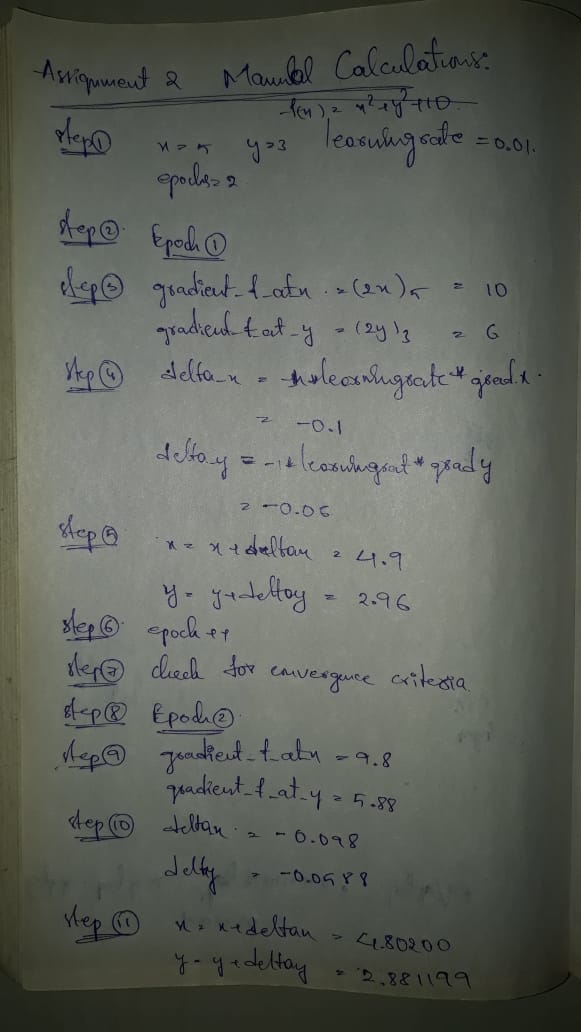 Assignment 2 Manual Calculations:
f(x) = x²+y²+10
step ① x = 5 y=3 learning rate = 0.01.
epochs = 2
step ②. Epoch ①
step ③ gradient_f_at_x = (2x)5 = 10
gradient_f_at_y = (2y)3 = 6
step ④ delta_x = -1*learningrate * grad.x.
= -0.1
delta_y = -1* learningrat * grady
= -0.06
step ⑤ x = x + deltax = 4.9
y = y+deltay = 2.96
step ⑥ epoch ++
step ⑦ check for convergence criteria.
step ⑧ Epoch ②.
step ⑨ gradient_f_atx = 9.8
gradient_f_at_y = 5.88
step ⑩ deltax = -0.098
delty = -0.0588
step ⑪ x = x+deltax = 4.80200
y = y+deltay = 2.881199